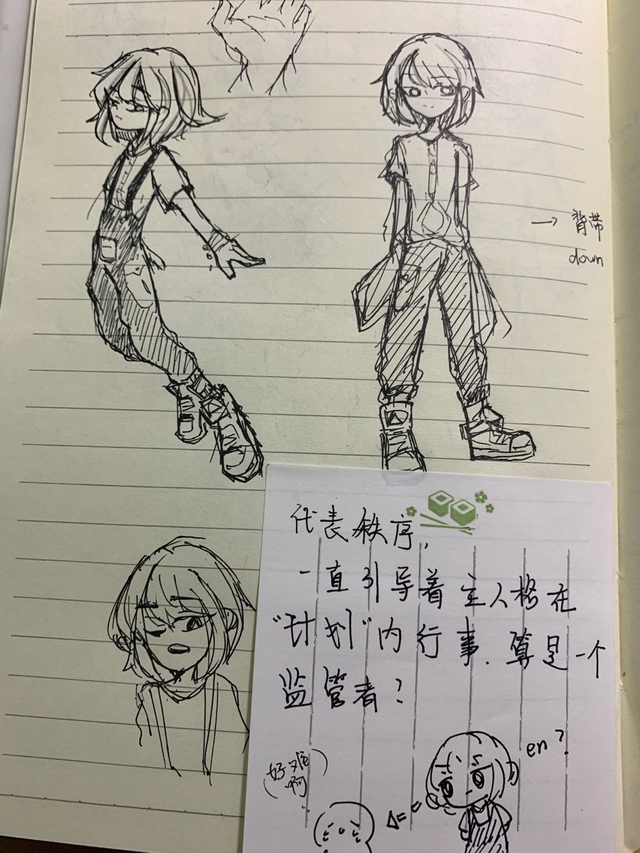 → 背带
down
代表秩序，
一直引导着主人格在
"计划"内行事．算是一个
监管者？
（好难
啊）
en？